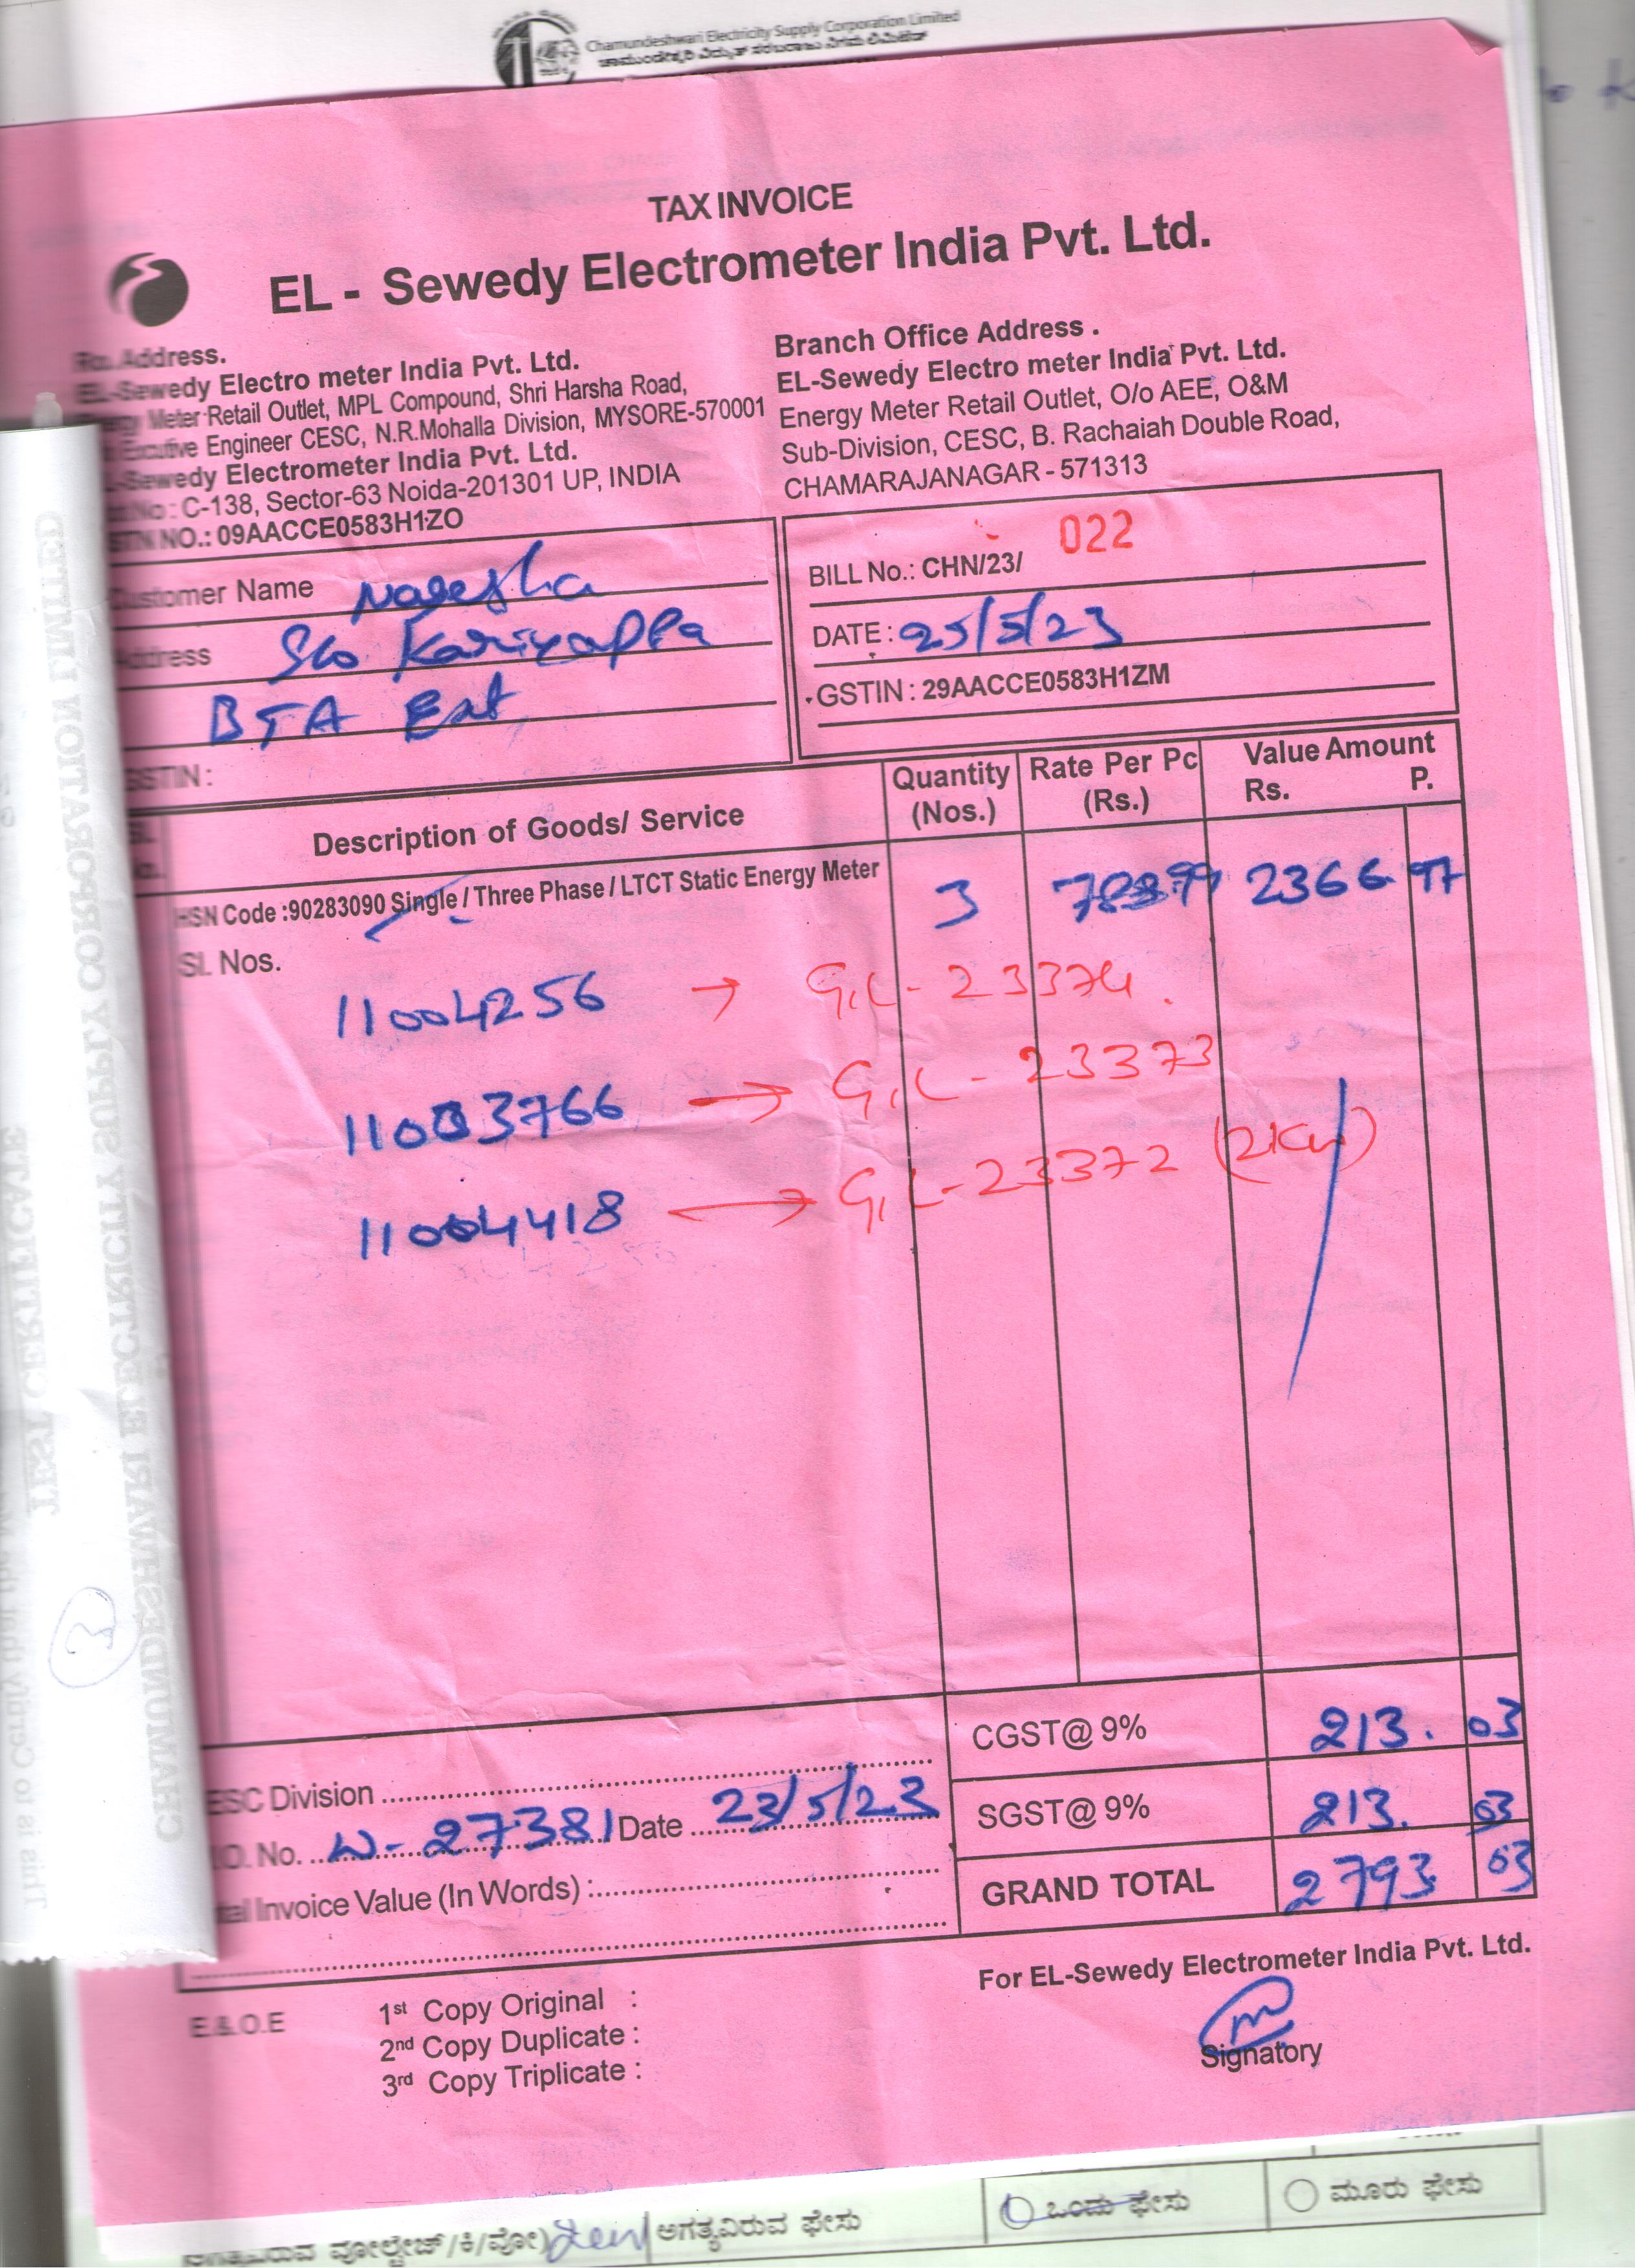 Chamundeshwari Electricity Supply Corporation Limited
ಚಾಮುಂಡೇಶ್ವರಿ ವಿದ್ಯುತ್ ಸರಬರಾಜು ನಿಗಮ ಲಿಮಿಟೆಡ್
TAX INVOICE
EL - Sewedy Electrometer India Pvt. Ltd.
Address.
EL-Sewedy Electro meter India Pvt. Ltd.
Meter Retail Outlet, MPL Compound, Shri Harsha Road,
Engineer CESC, N.R.Mohalla Division, MYSORE-570001
Sewedy Electrometer India Pvt. Ltd.
No : C-138, Sector-63 Noida-201301 UP, INDIA
NO.: 09AACCE0583H1ZO
Branch Office Address .
EL-Sewedy Electro meter India Pvt. Ltd.
Energy Meter Retail Outlet, O/o AEE, O&M
Sub-Division, CESC, B. Rachaiah Double Road,
CHAMARAJANAGAR - 571313
Customer Name Nagesha
Address S/o Kariyappa
BTA Ext
GSTIN :
BILL No.: CHN/23/ 022
DATE : 25/5/23
GSTIN : 29AACCE0583H1ZM
Description of Goods/ Service Quantity (Nos.) Rate Per Pc (Rs.) Value Amount Rs. P.
HSN Code :90283090 Single / Three Phase / LTCT Static Energy Meter 3 2366 97
Sl. Nos.
11004256 → GIL- 23374
11003766 → GIL- 23373
11004418 → GIL-23372 (2KW)
CGST@ 9% 213. 03
SGST@ 9% 213. 03
GRAND TOTAL 2793 03
Division
No. W-27381 Date 23/5/23
Invoice Value (In Words) :
For EL-Sewedy Electrometer India Pvt. Ltd.
Signatory
E.&.O.E
1st Copy Original :
2nd Copy Duplicate :
3rd Copy Triplicate :
CHAMUNDESHWARI ELECTRICITY SUPPLY CORPORATION LIMITED
TEST CERTIFICATE
This is to Certify that the
3
ಅಗತ್ಯವಿರುವ ಫೇಸು ಒಂದು ಫೇಸು ಮೂರು ಫೇಸು